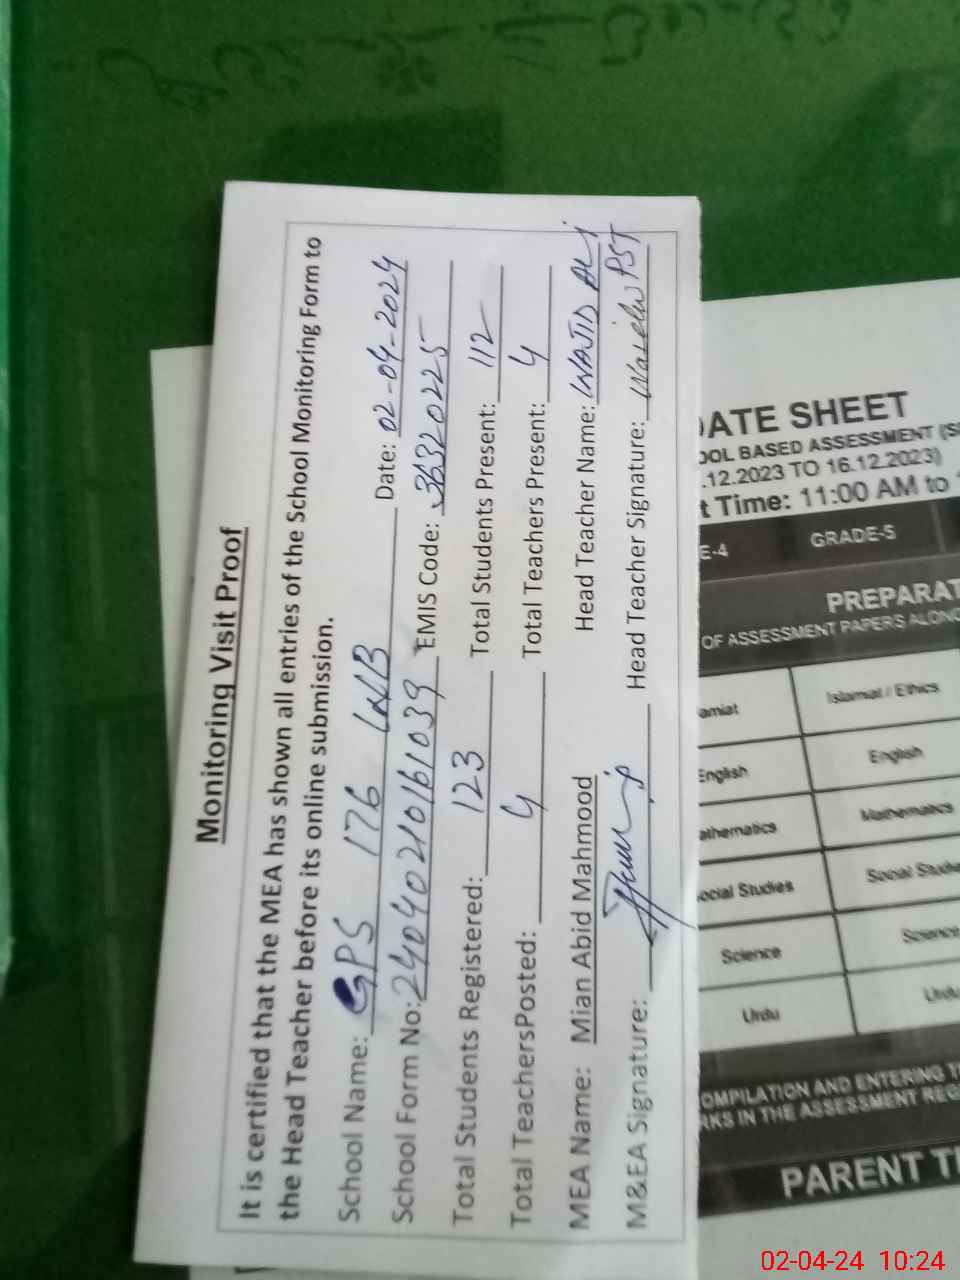 Monitoring Visit Proof
It is certified that the MEA has shown all entries of the School Monitoring Form to
the Head Teacher before its online submission.
School Name: GPS 176 WB Date: 02-04-2024
School Form No: 24040210161039 EMIS Code: 36320225
Total Students Registered: 123 Total Students Present: 112
Total TeachersPosted: 4 Total Teachers Present: 4
MEA Name: Mian Abid Mahmood Head Teacher Name: WAJID ALI
M&EA Signature: Head Teacher Signature: PST
ATE SHEET
OOL BASED ASSESSMENT (S
.12.2023 TO 16.12.2023)
t Time: 11:00 AM to
E-4 GRADE-5
PREPARAT
OF ASSESSMENT PAPERS ALONG
amiat Islamiat / Ethics
English English
athematics Mathematics
ocial Studies Social Studie
Science Science
Urdu Urdu
OMPILATION AND ENTERING T
RKS IN THE ASSESSMENT REG
PARENT T
02-04-24 10:24